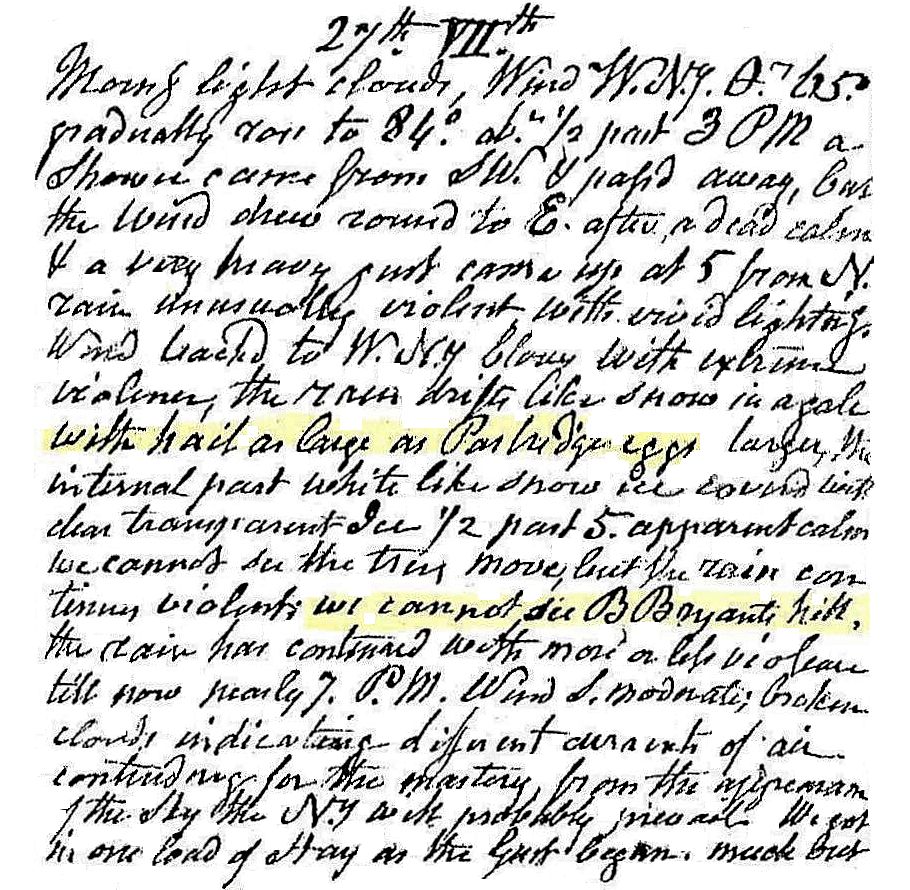 27th VIIth
Morng light clouds, Wind W.N.
gradually rose to 84° abt 1/2 past 3 PM a
Shower came from SW. & passd away, but
the Wind drew round to E. after a dead calm
& a very heavy gust came up at 5 from N.
rain unusually violent with vivid lightng.
Wind backd to W. N. blowg with extreme
violence, the rain drifts like snow in a gale
with hail as large as Partridge eggs larger, the
internal part white like snow ice coverd with
clear transparent Ice 1/2 past 5. apparent calm
we cannot see the trees move, but the rain con
tinues violent; we cannot see B Bryants hill,
the rain has continued with more or less violence
till now nearly 7. P.M. Wind S. moderate; broken
clouds indicating different currents of air
contending for the mastery, from the appearan
of the Sky the will probably prevail We got
in one load of Hay as the Gust began. much but